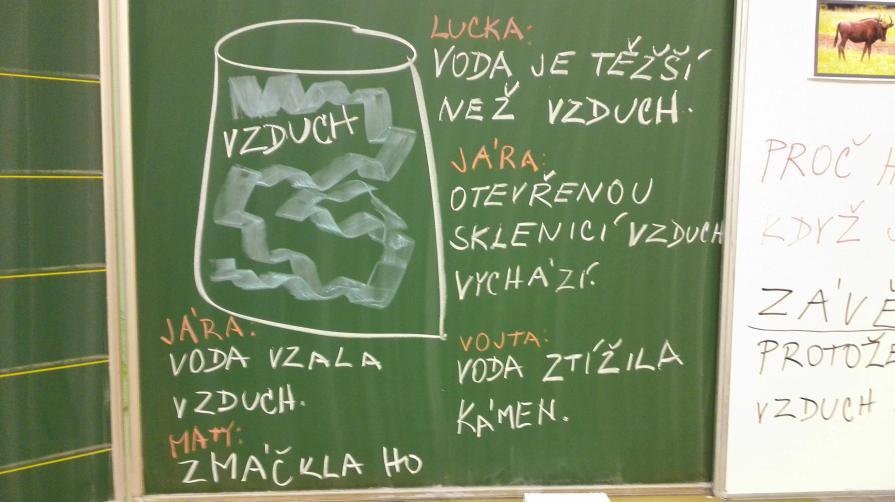 VZDUCH
LUCKA:
VODA JE TĚŽŠÍ
NEŽ VZDUCH.
JÁRA:
OTEVŘENOU
SKLENICÍ VZDUCH
VYCHÁZÍ.
VOJTA:
VODA ZTÍŽILA
KÁMEN.
JÁRA:
VODA VZALA
VZDUCH.
MATY:
ZMÁČKLA HO
PROČ
KDYŽ
ZÁVĚ
PROTOŽE
VZDUCH